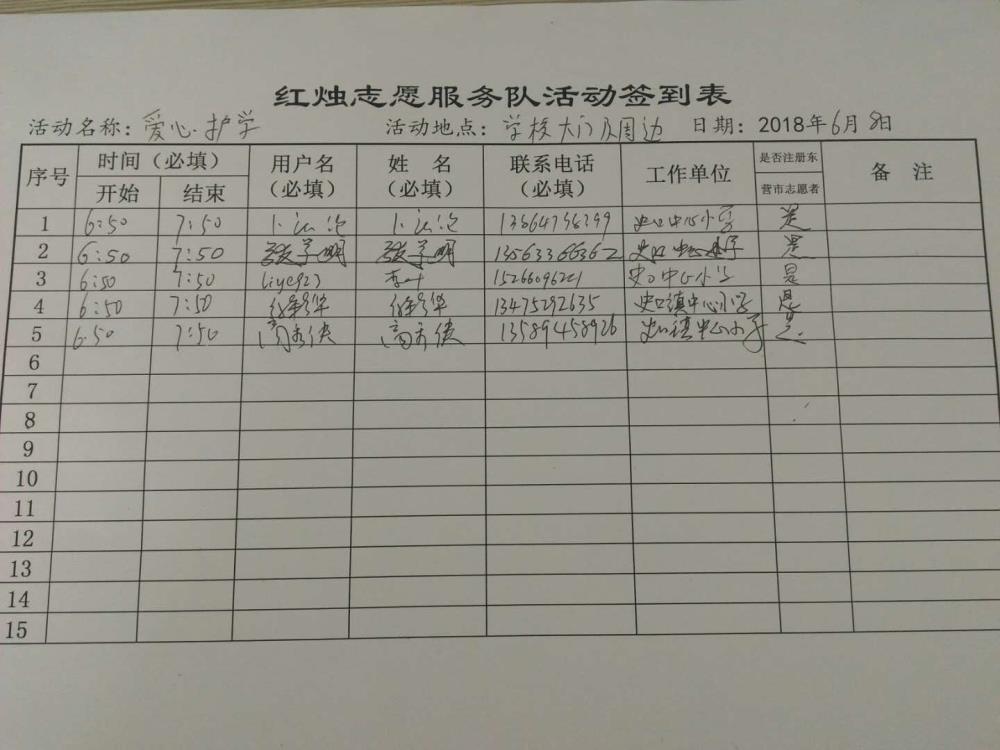 红烛志愿服务队活动签到表
活动名称：爱心护学 活动地点：学校大门及周边 日期：2018年6月8日
序号 时间（必填） 用户名（必填） 姓名（必填） 联系电话（必填） 工作单位 是否注册东营市志愿者 备注
开始 结束
1 6:50 7:50 史口中心小学 是
2 6:50 7:50 13563366362 史口中心小学 是
3 6:50 7:50 liye923 李叶 15266096221 史口中心小学 是
4 6:50 7:50 13475292635 史口镇中心小学 是
5 6:50 7:50 高秀侠 高秀侠 13589458926 史口镇中心小学 是
6
7
8
9
10
11
12
13
14
15